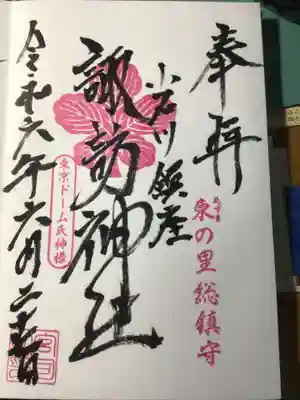 奉拝
泉の里総鎮守
小石川鎮座
諏訪神社
東京ドーム氏神様
令和六年六月二十七日